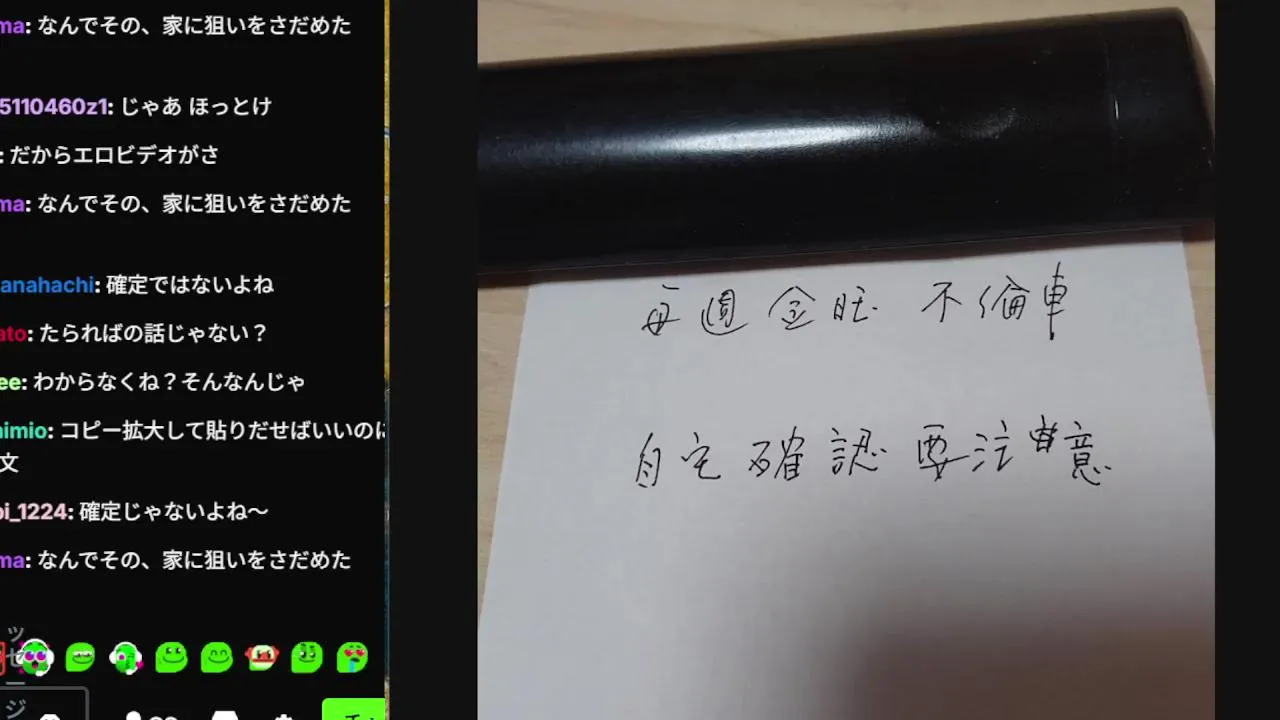 ma: なんでその、家に狙いをさだめた
5110460z1: じゃあ ほっとけ
: だからエロビデオがさ
ma: なんでその、家に狙いをさだめた
anahachi: 確定ではないよね
ato: たらればの話じゃない？
ee: わからなくね？そんなんじゃ
nimio: コピー拡大して貼りだせばいいのに
文
oi_1224: 確定じゃないよね〜
ma: なんでその、家に狙いをさだめた
ッセージ
毎週 金旺 不倫車
自宅確認要注意